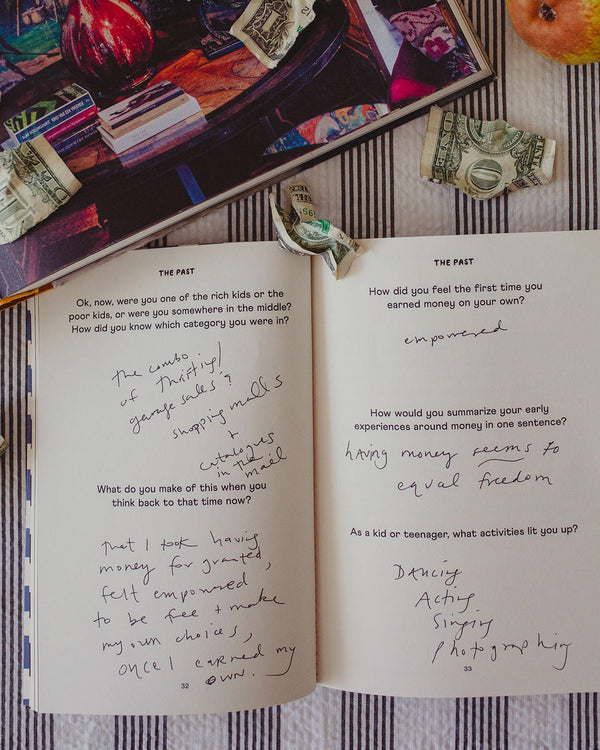 THE PAST
Ok, now, were you one of the rich kids or the
poor kids, or were you somewhere in the middle?
How did you know which category you were in?
the combo
of thrifting/
garage sales?
shopping malls
+
catalogues
in the
mail
What do you make of this when you
think back to that time now?
that I took having
money for granted,
felt empowered
to be free + make
my own choices,
once I earned my
own.
32
THE PAST
How did you feel the first time you
earned money on your own?
empowered
How would you summarize your early
experiences around money in one sentence?
having money seems to
equal freedom
As a kid or teenager, what activities lit you up?
Dancing
Acting
Singing
Photographing
33